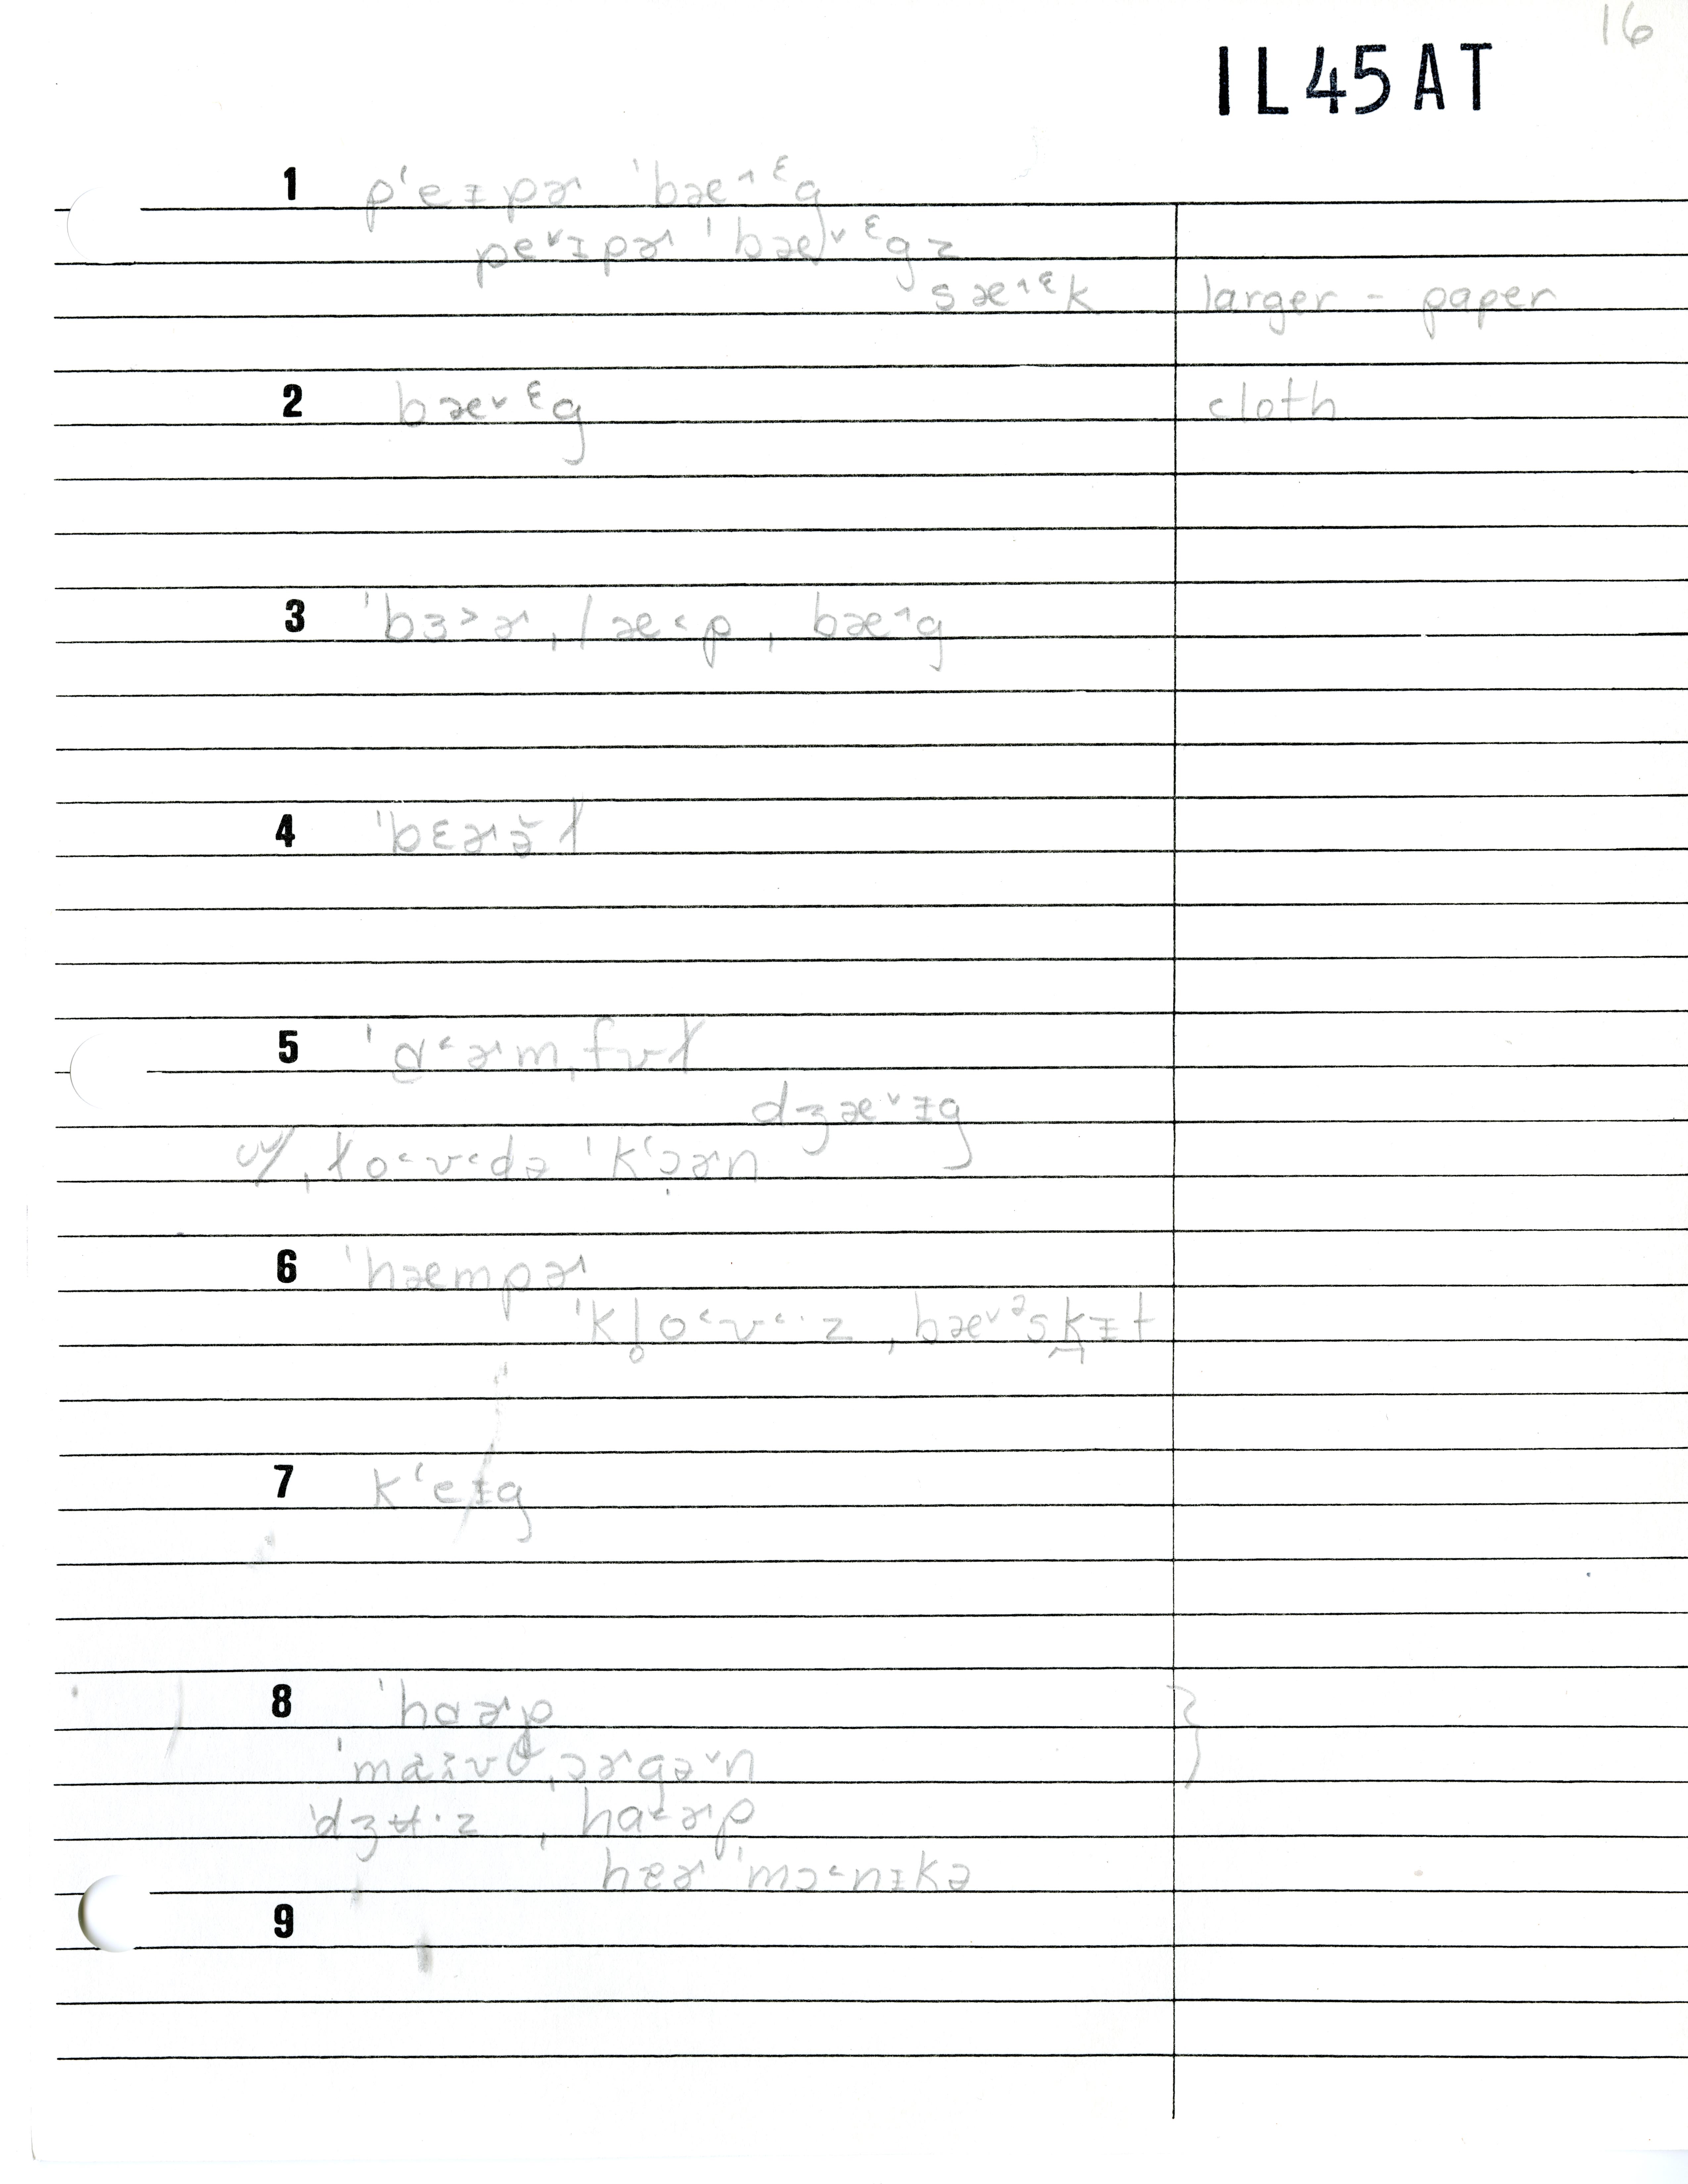 16
IL45AT
1 pʻeɪpɚ ˈbæ˄ᵋg
pe˅ɪpɚ ˈbæ˅ᵋgz
sæ˄ᵋk larger - paper
2 bæ˅ᵋg cloth
3 ˈbɜ˃ɚˌlæ˂p ˌbæ˄g
4 ˈbɛɚə̆ɫ
5 ˈɑ˂ɚmˌfʊɫ
dʒæ˅ɪg
w/ ˌɫo˂ʊ˂də ˈkʻɔɚn
6 ˈhæmpɚ
ˈkl̥o˂ʊ˂·z ˌbæ˅ᵊsk̯ɪt
7 kʻeɪg
8 ˈhɑɚp }
ˌɔɚgə˅n
ˈdʒʉ·z ˌhɑ˂ɚp
ˌmɔ˂nɪkə
9